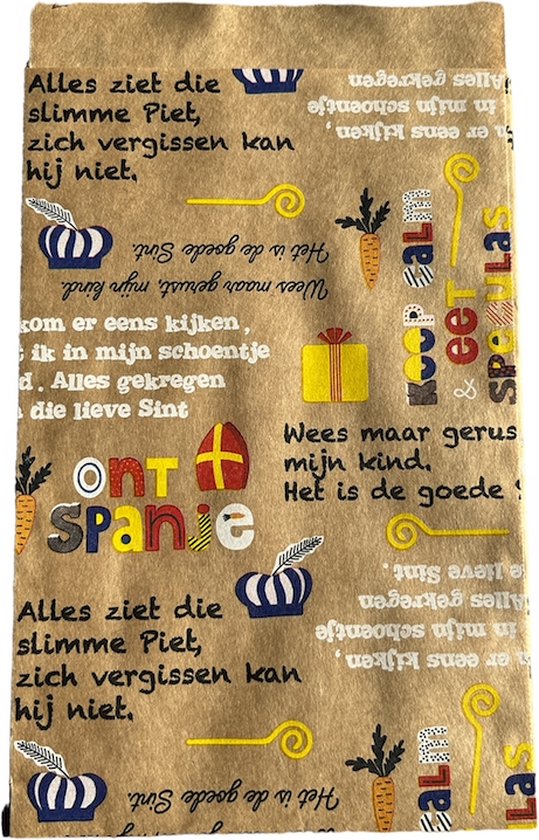 Alles ziet die
slimme Piet,
zich vergissen kan
hij niet.
er eens kijken,
in mijn schoentje
Alles gekregen
Wees maar gerust, mijn kind.
Het is de goede Sint.
KOOP CALM
& EET
SPECULAS
kom er eens kijken,
ik in mijn schoentje
d. Alles gekregen
die lieve Sint
Wees maar gerus
mijn kind.
Het is de goede
ONT
SPANJE
er eens kijken,
in mijn schoentje
Alles gekregen
e lieve Sint.
Alles ziet die
slimme Piet,
zich vergissen kan
hij niet.
Het is de goede Sint.
ALM
LAS